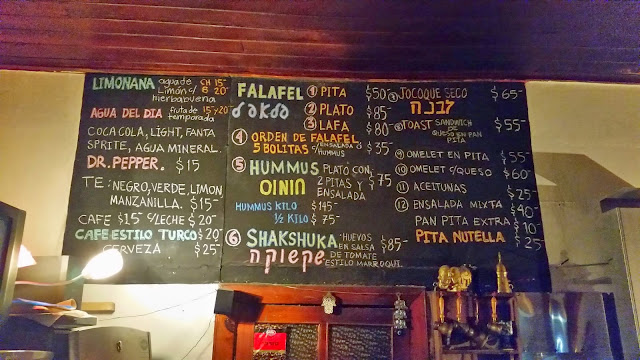 LIMONANA agua de CH 15-
Limón c/ G 20-
hierbabuena
AGUA DEL DIA fruta de 15 y 20-
temporada
COCA COLA, LIGHT, FANTA
SPRITE, AGUA MINERAL.
DR. PEPPER. $15
TE: NEGRO, VERDE, LIMON
MANZANILLA. $15-
CAFE $15- C/LECHE $20-
CAFE ESTILO TURCO $20-
CERVEZA $25-
FALAFEL ① PITA $50
פלאפל ② PLATO $85-
③ LAFA $80-
④ ORDEN DE FALAFEL
5 BOLITAS C/ENSALADA O HUMMUS $35
⑤ HUMMUS PLATO CON
חומוס 2 PITAS Y $75
ENSALADA
HUMMUS KILO $145-
½ KILO $75-
⑥ SHAKSHUKA -HUEVOS $85-
שקשוקה EN SALSA
DE TOMATE
ESTILO MARROQUI.
⑦ JOCOQUE SECO $65-
לבנה
⑧ TOAST SANDWICH $55-
DE
QUESO EN PAN
PITA
⑨ OMELET EN PITA $55-
⑩ OMELET C/QUESO $60-
⑪ ACEITUNAS $25-
⑫ ENSALADA MIXTA $40-
PAN PITA EXTRA $10-
PITA NUTELLA $25-